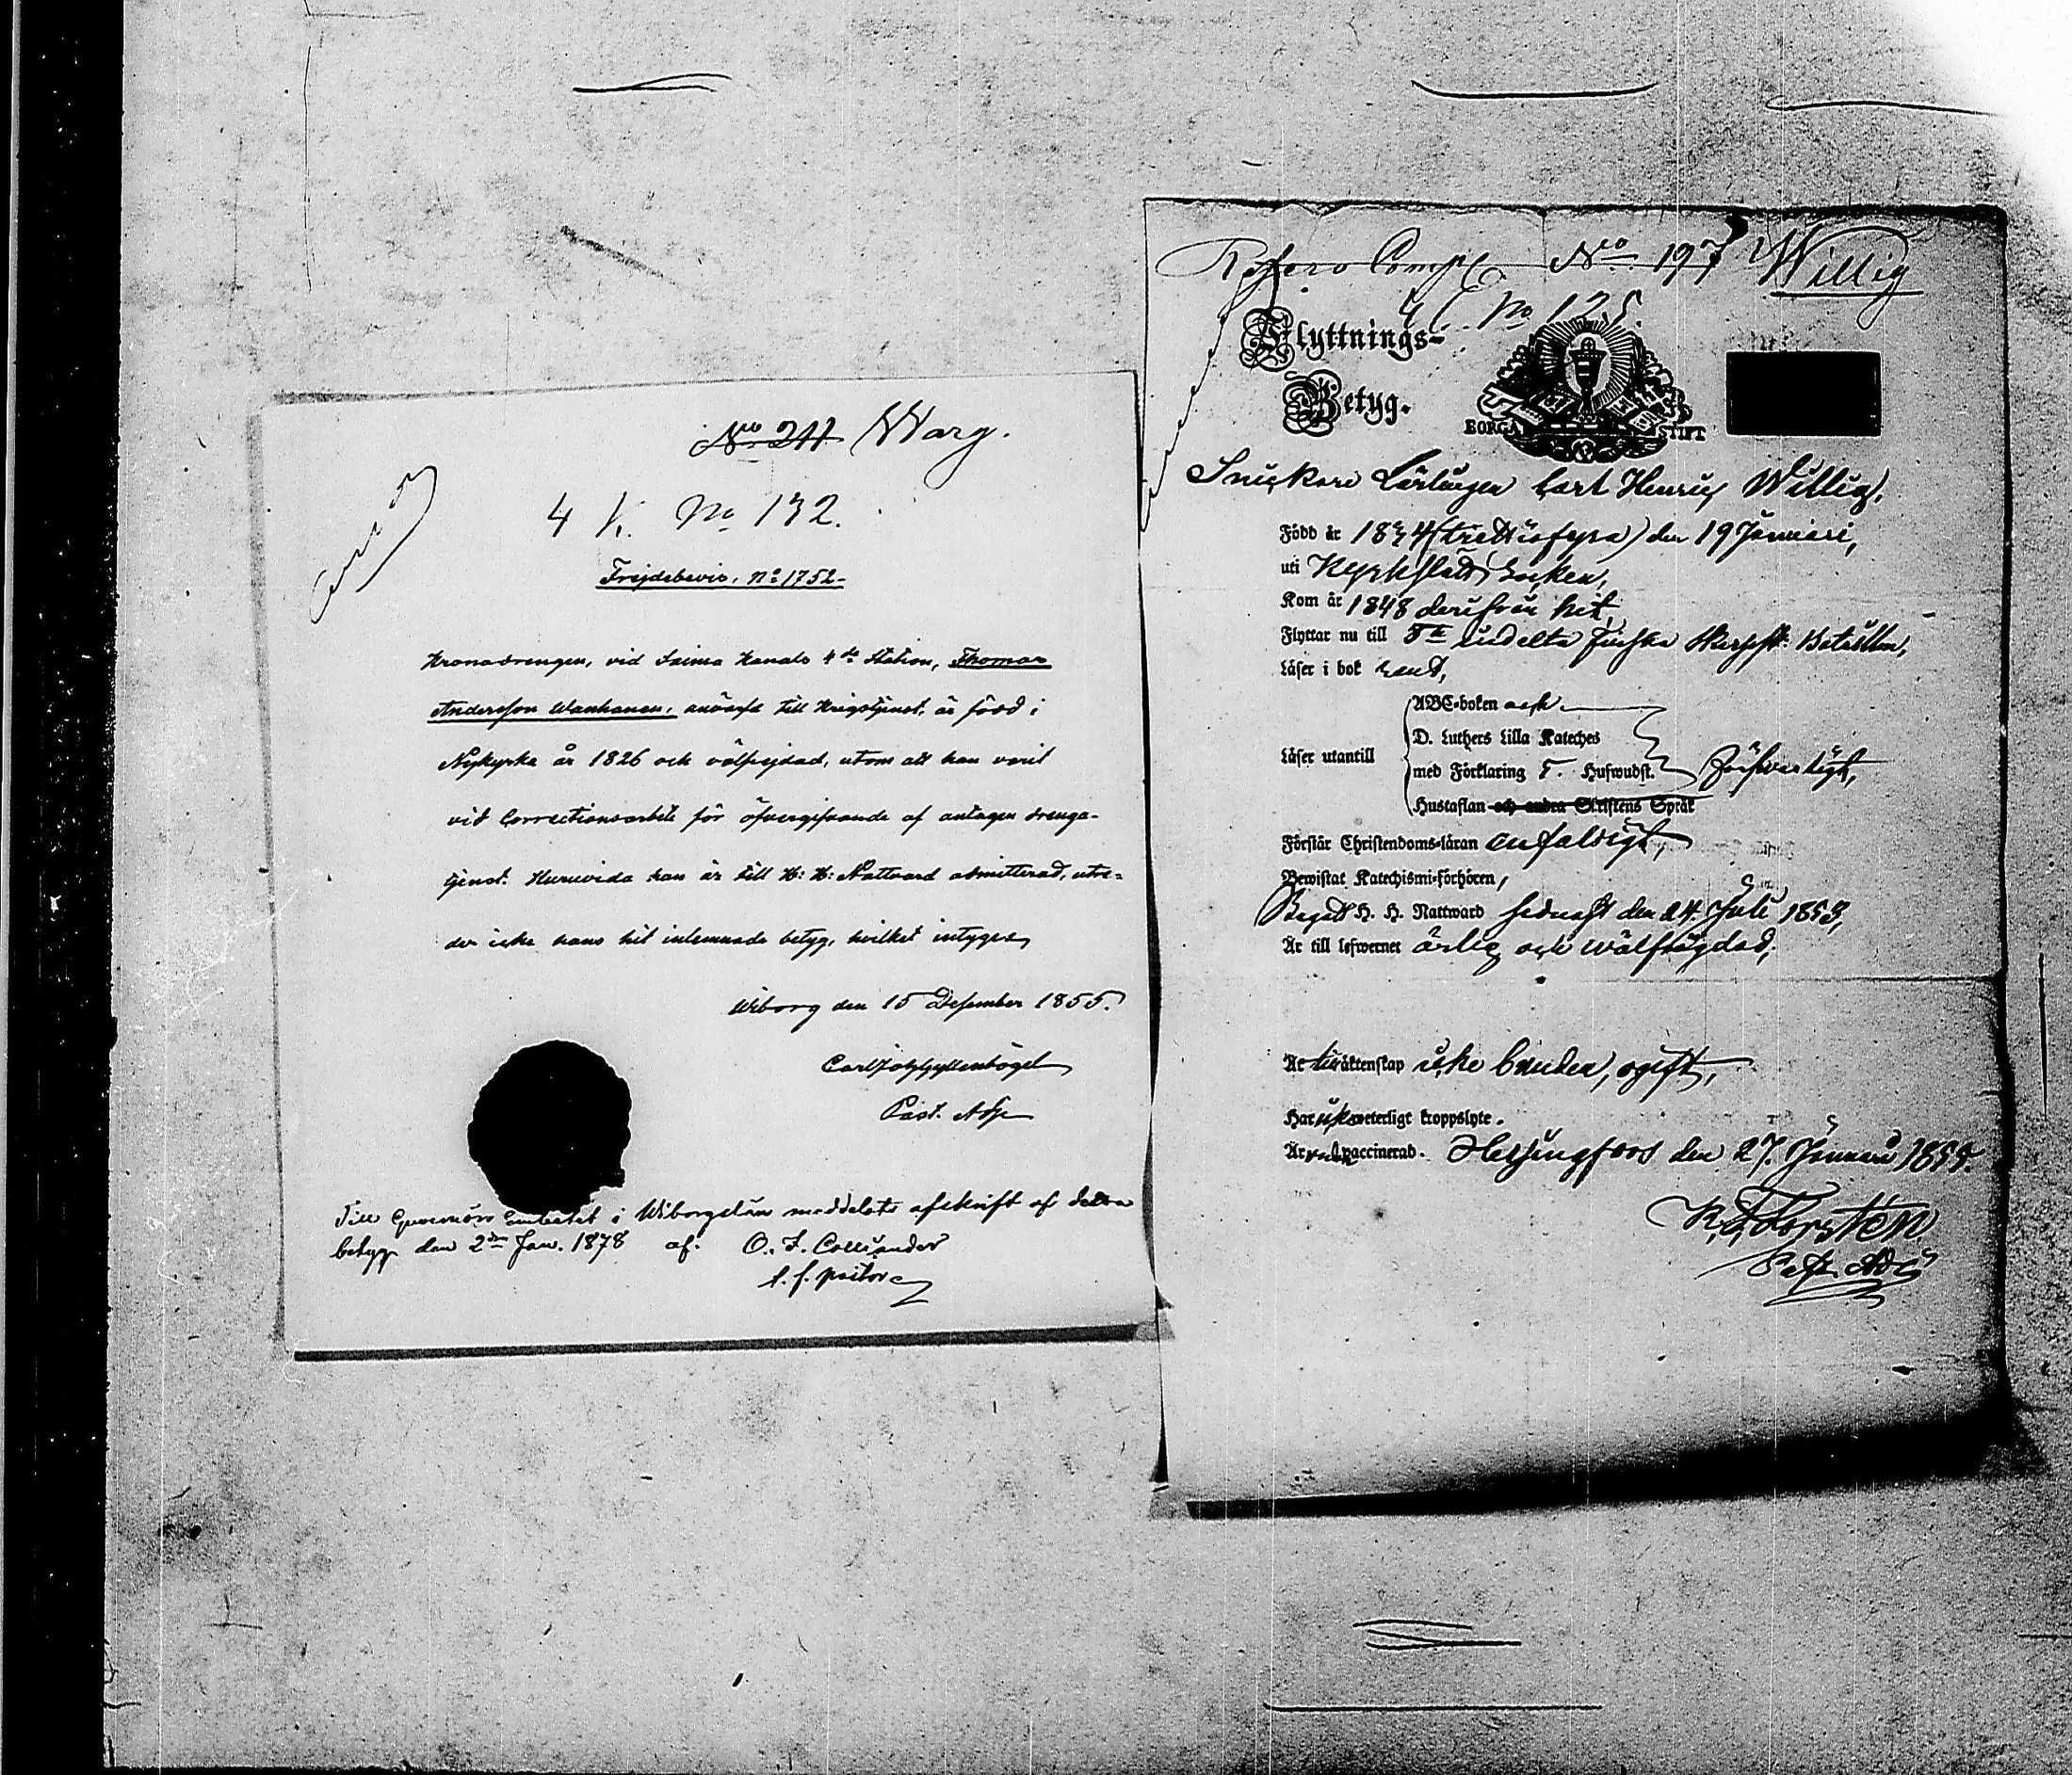 No 211 Warg.
4 K. No 132.
Frejdebevis, No 1752.
Kronodrengen, vid Saima Kanals 4de Station, Thomas
Andersson Wanhanen, anvärfd till Krigstjenst, är född i
Nykyrka år 1826 och välfrejdad, utom att han varit
vid Correctionsarbete för öfvergifvande af antagen drengs-
tjenst. Huruvida han är till H: H: Nattvard admitterad, utre-
der icke hans hit inlemnade betyg, hvilket intygas,
Wiborg den 15 December 1855.
Carl Joh Gyllenbögel
Past. Adj.
Till Guvernörs Embetet i Wiborgs län meddelats afskrift af detta
betyg den 2dn Jan. 1878 af. O. F. Colliander
t. f. pastor
Reserv Comp No 197 Willig
4 C. No 125.
Flyttnings-
Betyg.
BORGÅ STIFT
Snickare Lärlingen Carl Henric Willig,
Född år 1834 (trettiofyra) den 19 Januari,
uti Kyrkslätt Socken,
Kom år 1848 derifrån hit,
Flyttar nu till indelta Finska Skarpsk: Bataillon,
Läser i bok rent,
ABC-boken och
D. Luthers Lilla Kateches
Läser utantill
med Förklaring T. Hufwudst. försvarligt,
Hustaflan och andra Skriftens Språk
Förstår Christendoms-läran enfaldigt,
Bewistat Katechismi-förhören,
Begått H. H. Nattward sednast den 24. Juli 1853,
Är till lefwernet ärlig och wälfrägdad,
Är till äktenskap icke bunden, ogift,
Har icke weterligt kroppslyte.
Är vaccinerad. Helsingfors den 27. Januari 1855.